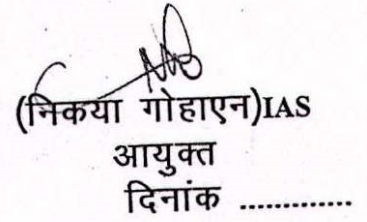 (निकया गोहाएन)IAS
आयुक्त
दिनांक .............